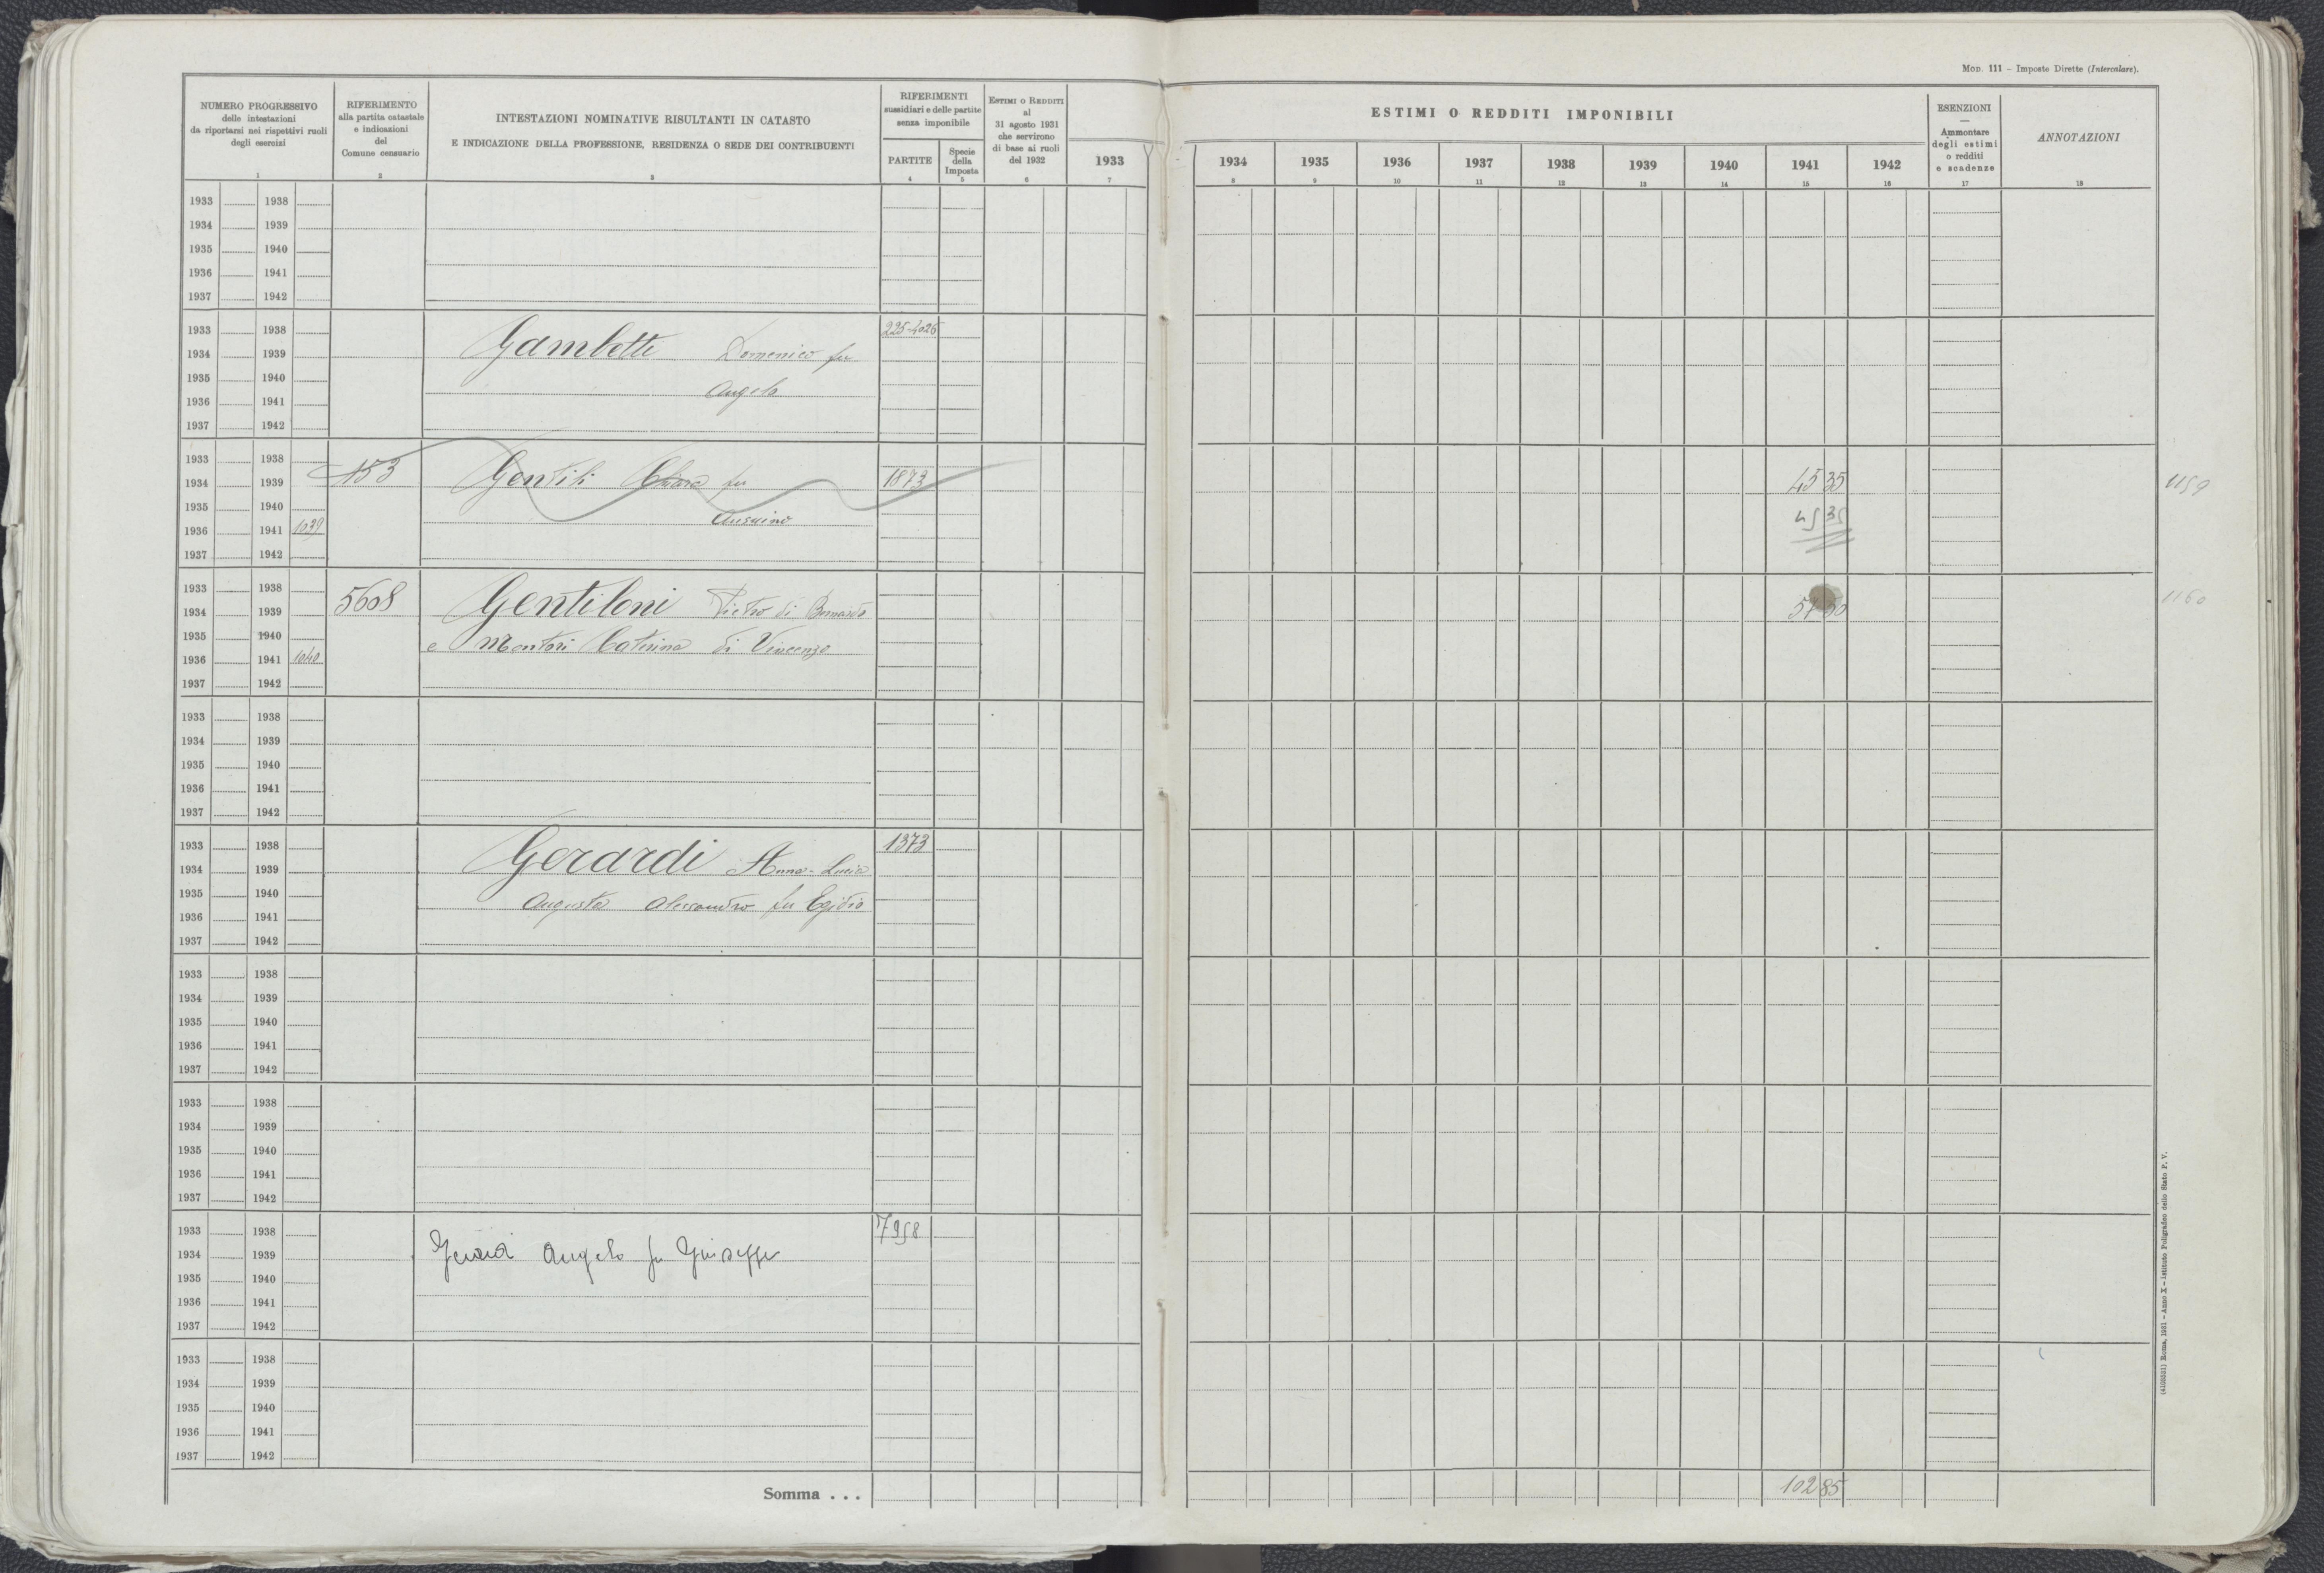 MOD. 111 – Imposte Dirette (Intercalare).
NUMERO PROGRESSIVO
delle intestazioni
da riportarsi nei rispettivi ruoli
degli esercizi
1
RIFERIMENTO
alla partita catastale
e indicazioni
del
Comune censuario
2
INTESTAZIONI NOMINATIVE RISULTANTI IN CATASTO
E INDICAZIONE DELLA PROFESSIONE, RESIDENZA O SEDE DEI CONTRIBUENTI
3
RIFERIMENTI
sussidiari e delle partite
senza imponibile
PARTITE
4
Specie
della
Imposta
5
ESTIMI O REDDITI
al
31 agosto 1931
che servirono
di base ai ruoli
del 1932
6
ESTIMI O REDDITI IMPONIBILI
1933 1934 1935 1936 1937 1938 1939 1940 1941 1942
7 8 9 10 11 12 13 14 15 16
ESENZIONI
—
Ammontare
degli estimi
o redditi
e scadenze
17
ANNOTAZIONI
18
1933 1938
1934 1939
1935 1940
1936 1941
1937 1942
1933 1938 225-4026
1934 1939 Gambetti Domenico fu
1935 1940 Angelo
1936 1941
1937 1942
1933 1938
1934 1939 153 Gentili Chiara fu 1873 45 35 1159
1935 1940 45 35
1936 1941 1039
1937 1942
1933 1938
1934 1939 5608 Gentiloni Pietro di Bernardo 57 50 1160
1935 1940 e Montari Caterina di Vincenzo
1936 1941 1040
1937 1942
1933 1938
1934 1939
1935 1940
1936 1941
1937 1942
1933 1938 1373
1934 1939 Gerardi Anna - Lucia
1935 1940 Augusta Alessandro fu Egidio
1936 1941
1937 1942
1933 1938
1934 1939
1935 1940
1936 1941
1937 1942
1933 1938
1934 1939
1935 1940
1936 1941
1937 1942
1933 1938 7958
1934 1939 Angelo fu Giuseppe
1935 1940
1936 1941
1937 1942
1933 1938
1934 1939
1935 1940
1936 1941
1937 1942
Somma . . . 102 85
(4108531) Roma, 1931 – Anno X – Istituto Poligrafico dello Stato P. V.